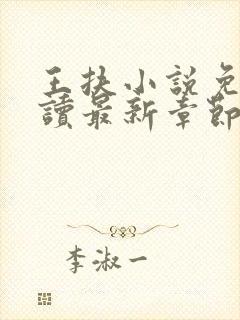 王扶小說免
讀最新章節
李淑一